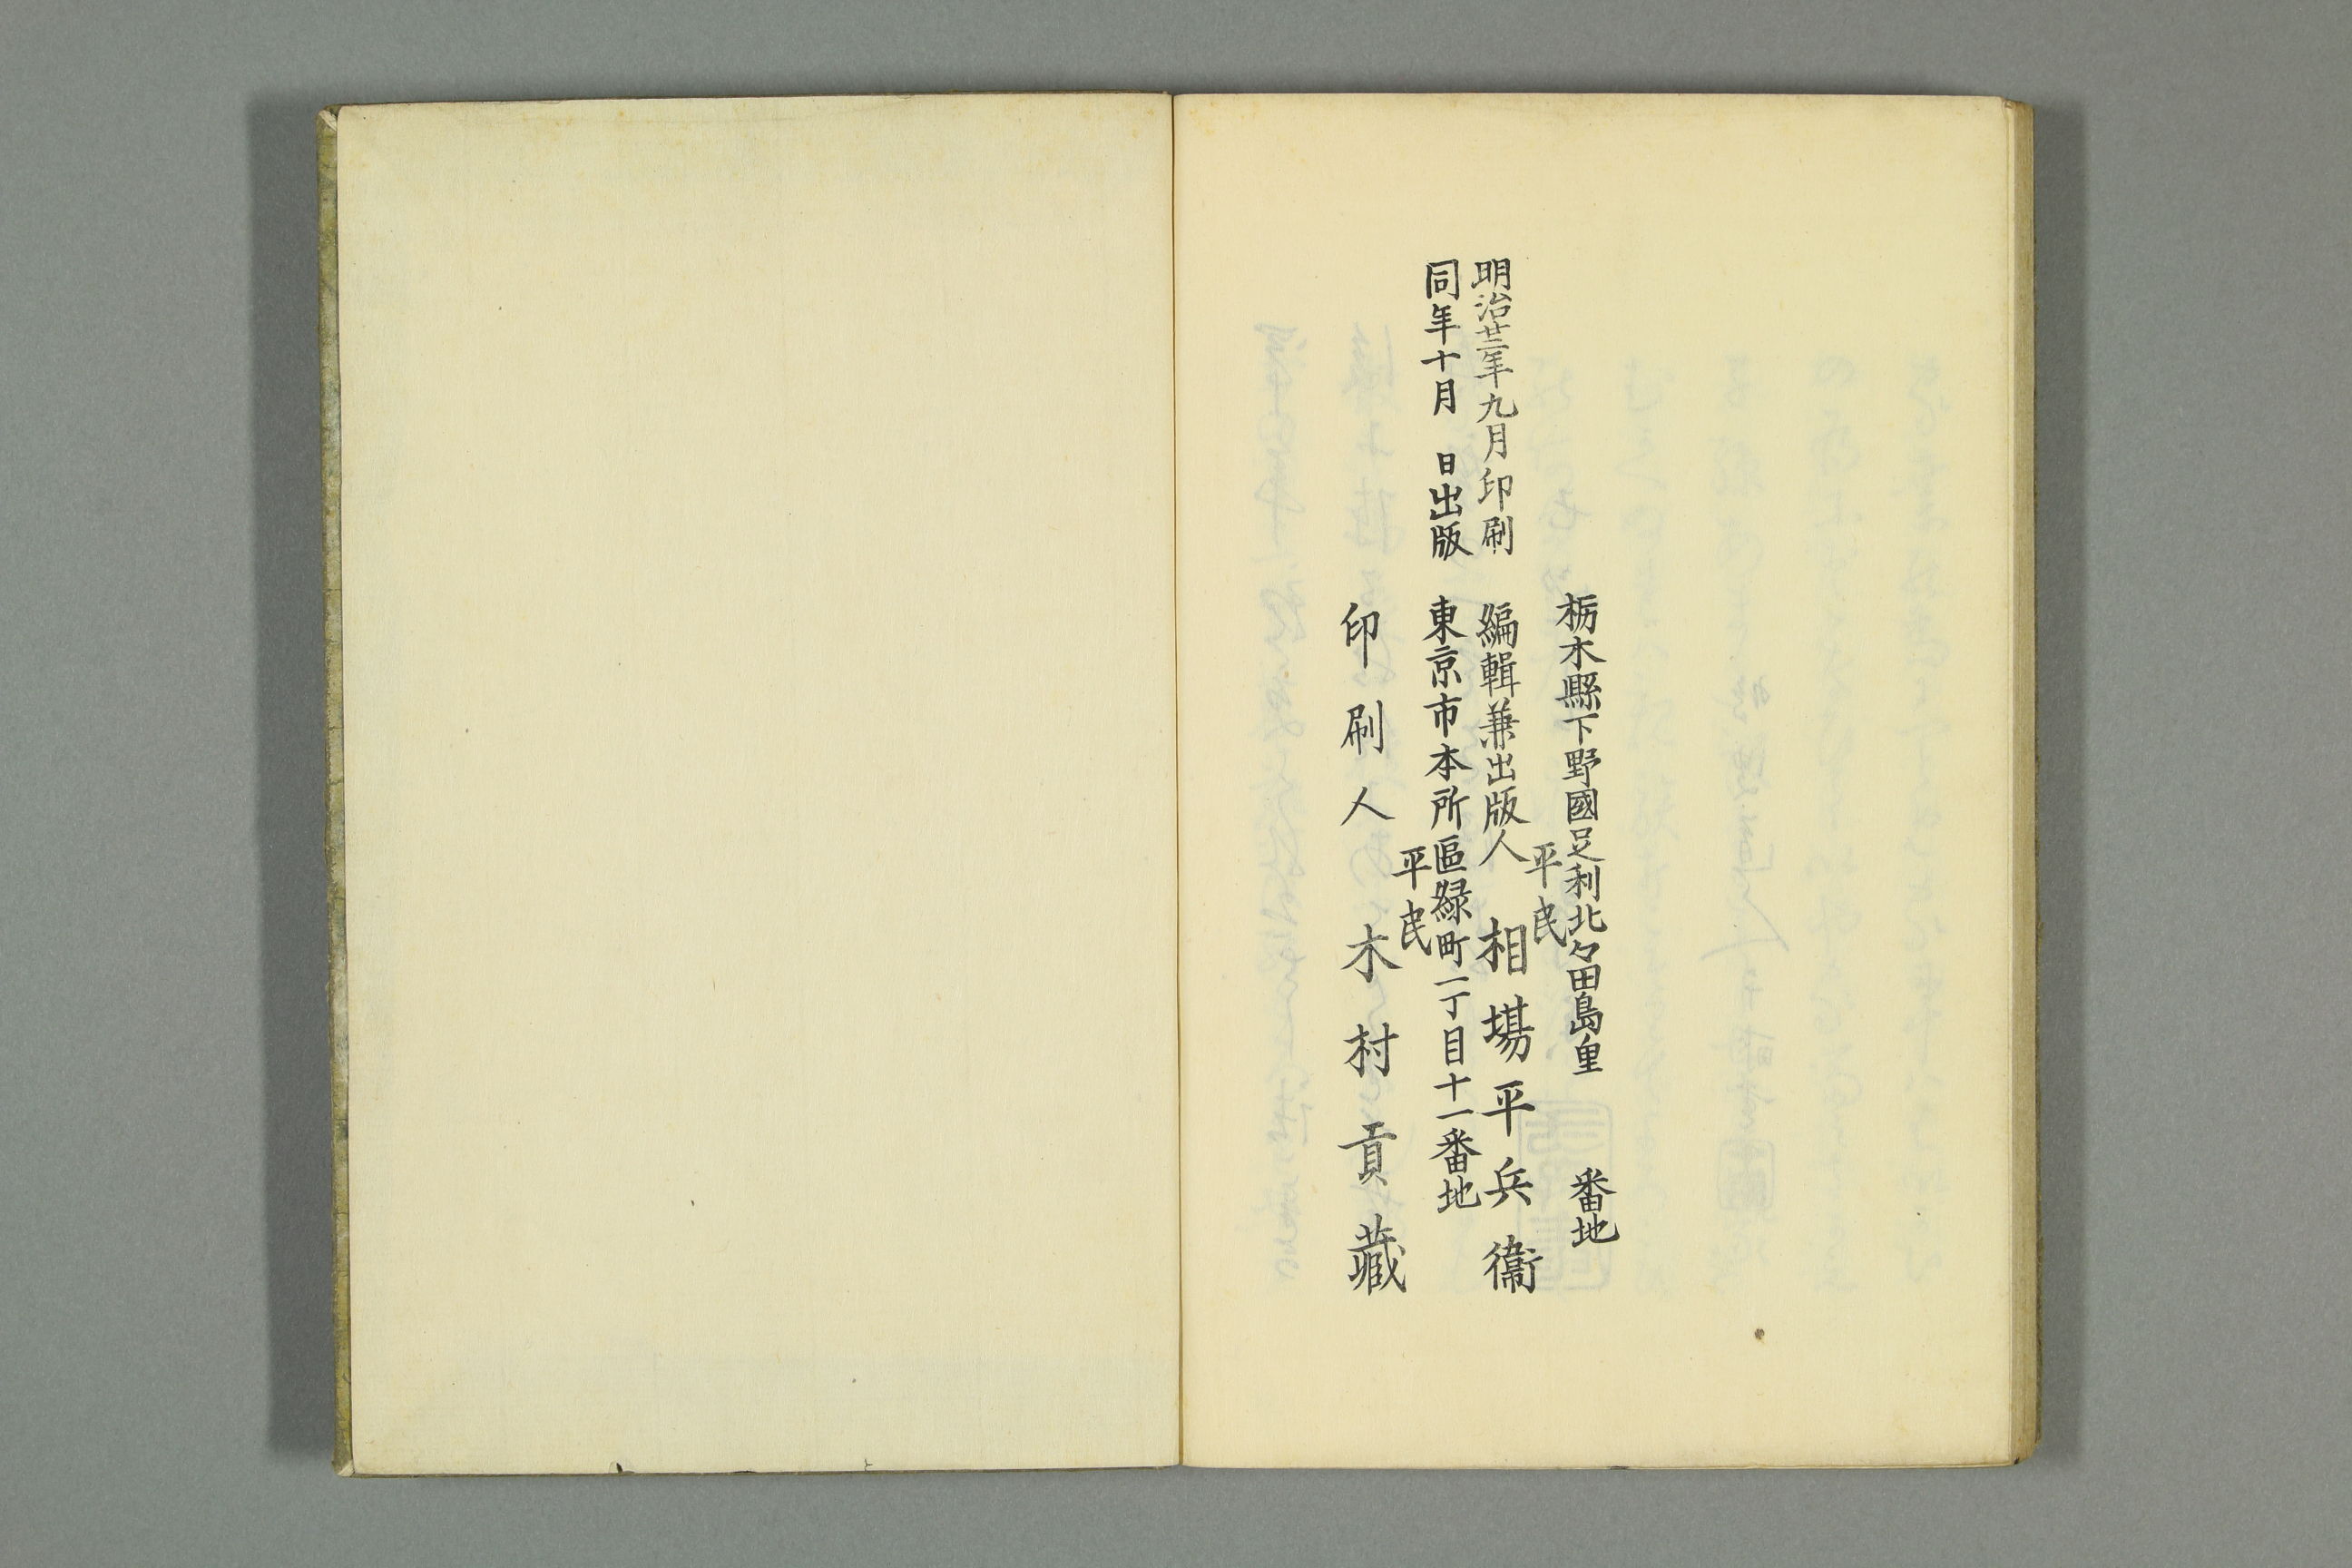 栃木縣下野國足利北々田島里　番地
平民
明治廿三年九月印刷　編輯兼出版人　相場平兵衞
同年十月　日出版　東京市本所區緑町一丁目十一番地
平民
印刷人　木村貢藏